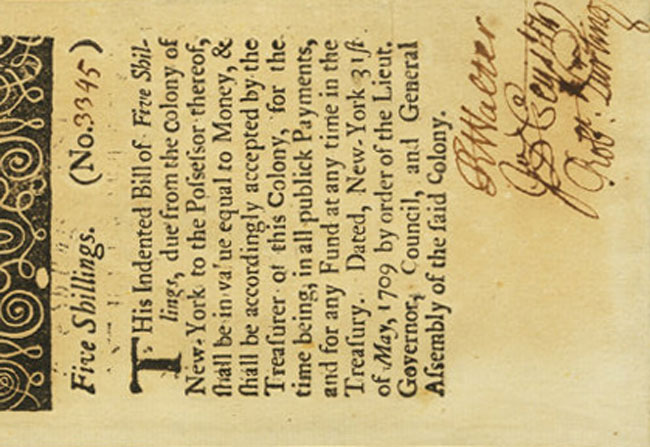 Five Shillings. (No. 3345)
THis Indented Bill of Five Shil-
lings, due from the Colony of
New-York to the Poſseſsor thereof,
ſhall be in va'ue equal to Money, &
ſhall be accordingly accepted by the
Treaſurer of this Colony, for the
time being, in all publick Payments,
and for any Fund at any time in the
Treaſury. Dated, New-York 31ſt
of May, 1709 by order of the Lieut.
Governor, Council, and General
Aſsembly of the ſaid Colony.
R Walter
Robt. Lurting